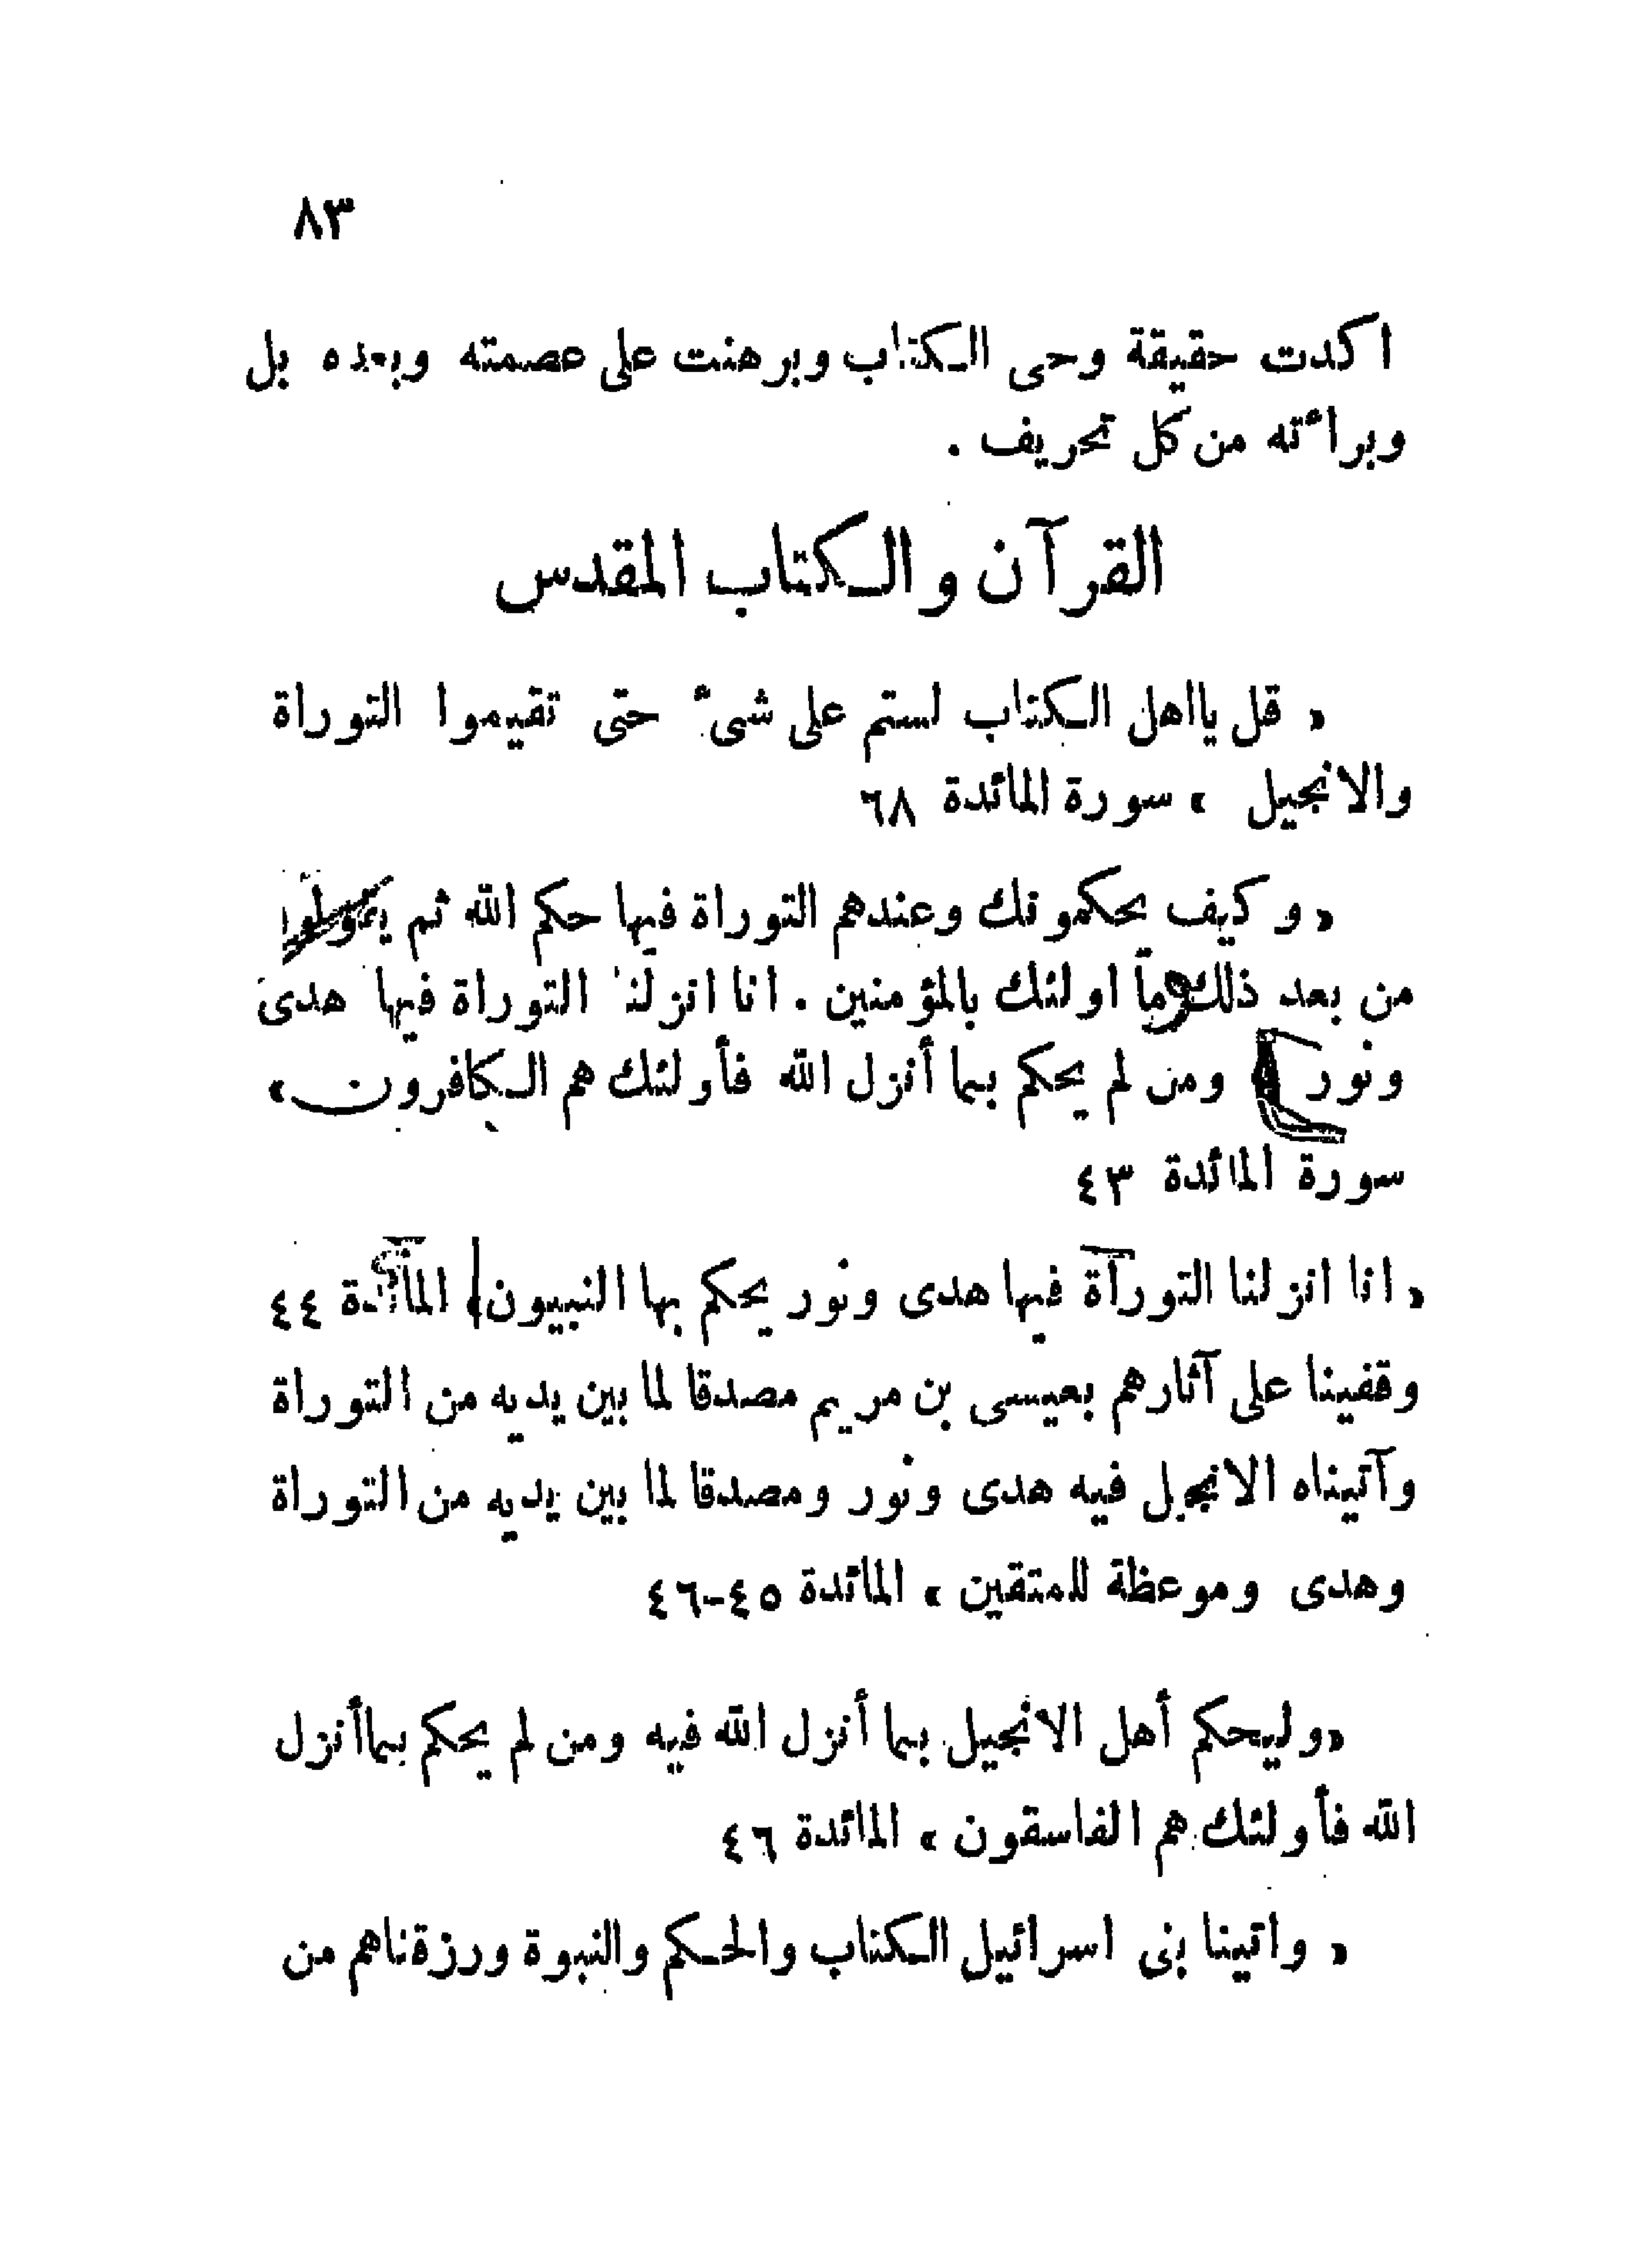 ٨٣
اكدت حقيقة وحى الكتاب وبرهنت على عصمته وبعده بل
وبراءته من كل تحريف .
القرآن والكتاب المقدس
« قل يااهل الكتاب لستم على شىء حتى تقيموا التوراة
والانجيل » سورة المائدة ٦٨
« وكيف يحكمونك وعندهم التوراة فيها حكم الله ثم
من بعد ذلك وما اولئك بالمؤمنين . انا انزلنا التوراة فيها هدى
ونور ومن لم يحكم بما أنزل الله فأولئك هم الكافرون »
سورة المائدة ٤٣
« انا انزلنا التورآة فيها هدى ونور يحكم بها النبيون » المائدة ٤٤
وقفينا على آثارهم بعيسى بن مريم مصدقا لما بين يديه من التوراة
وآتيناه الانجيل فيه هدى ونور ومصدقا لما بين يديه من التوراة
وهدى وموعظة للمتقين » المائدة ٤٥-٤٦
« وليحكم أهل الانجيل بما أنزل الله فيه ومن لم يحكم بماأنزل
الله فأولئك هم الفاسقون » المائدة ٤٦
« واتينا بنى اسرائيل الكتاب والحكم والنبوة ورزقناهم من